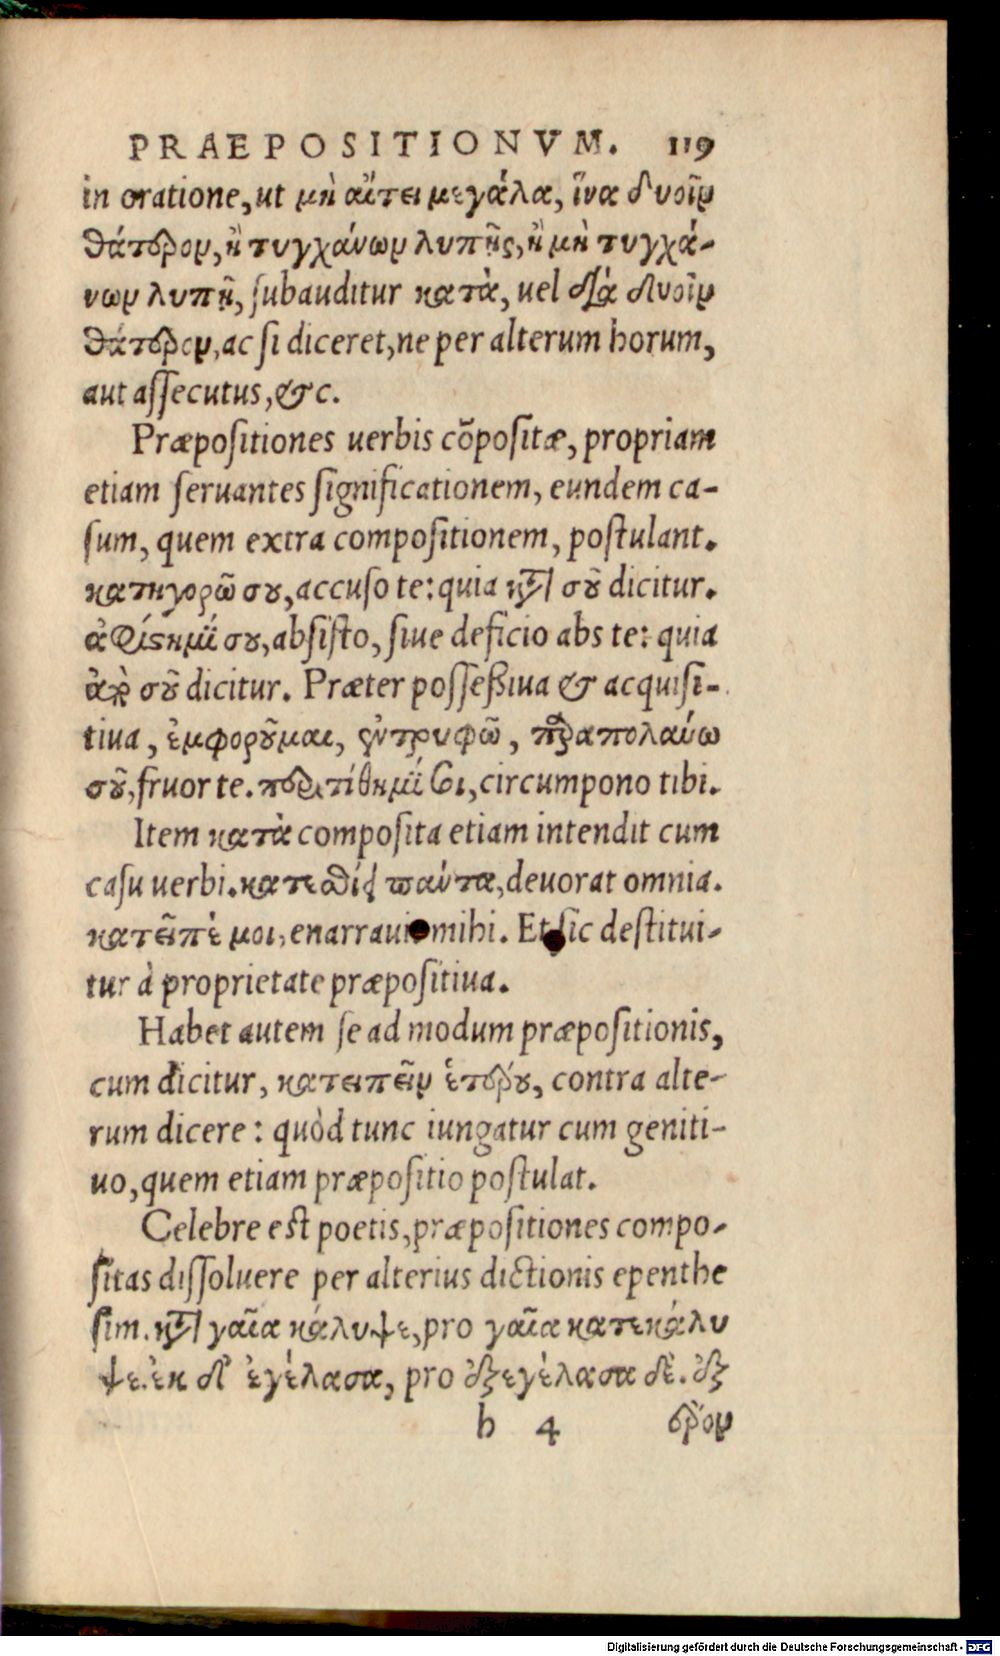 PRAEPOSITIONVM. 119
in oratione, ut μὴ αἴτει μεγάλα, ἵνα δυοῖν
θάτερον, ἢ τυγχάνων λυπῇς, ἢ μὴ τυγχά-
νων λυπῇ, ſubauditur κατὰ, uel διὰ δυοῖν
θάτερον, ac ſi diceret, ne per alterum horum,
aut aſſecutus, &c.
Præpoſitiones uerbis cōpoſitæ, propriam
etiam ſeruantes ſignificationem, eundem ca-
ſum, quem extra compoſitionem, poſtulant.
κατηγορῶ σου, accuſo te: quia κατὰ σοῦ dicitur.
ἀφίστημί σου, abſiſto, ſiue deficio abs te: quia
ἀπὸ σοῦ dicitur. Præter poſſeßiua & acquiſi-
tiua, ἐμφοροῦμαι, ἐντρυφῶ, παραπολαύω
σοῦ, fruor te. περιτίθημί σοι, circumpono tibi.
Item κατὰ compoſita etiam intendit cum
caſu uerbi. κατεσθίει πάντα, deuorat omnia.
κατεῖπέ μοι, enarrauit mihi. Et ſic deſtitui-
tur à proprietate præpoſitiua.
Habet autem ſe ad modum præpoſitionis,
cum dicitur, κατειπεῖν ἑτέρου, contra alte-
rum dicere: quòd tunc iungatur cum geniti-
uo, quem etiam præpoſitio poſtulat.
Celebre eſt poetis, præpoſitiones compo-
ſitas diſſoluere per alterius dictionis epenthe
ſim. κατὰ γαῖα κάλυψε, pro γαῖα κατεκάλυ
ψε. ἐκ δ' ἐγέλασα, pro ἐξεγέλασα δέ. ἐξ
h 4 ερον
Digitalisierung gefördert durch die Deutsche Forschungsgemeinschaft - DFG